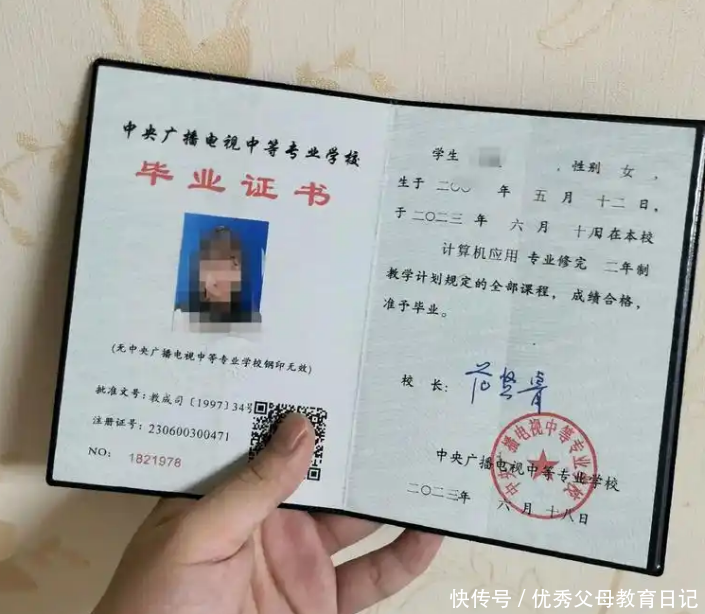 中央广播电视中等专业学校
毕业证书
(无中央广播电视中等专业学校钢印无效)
批准文号:教成司〔1997〕34号
注册证号:230600300471
NO: 1821978
学生 ,性别 女 ,
生于 二〇〇 年 五 月 十二 日,
于 二〇二三 年 六 月 日在本校
计算机应用 专业修完 二年制
教学计划规定的全部课程,成绩合格,
准予毕业。
校 长:
中央广播电视中等专业学校
二〇二三年 六 月 十八日
中央广播电视中等专业学校
快传号/优秀父母教育日记